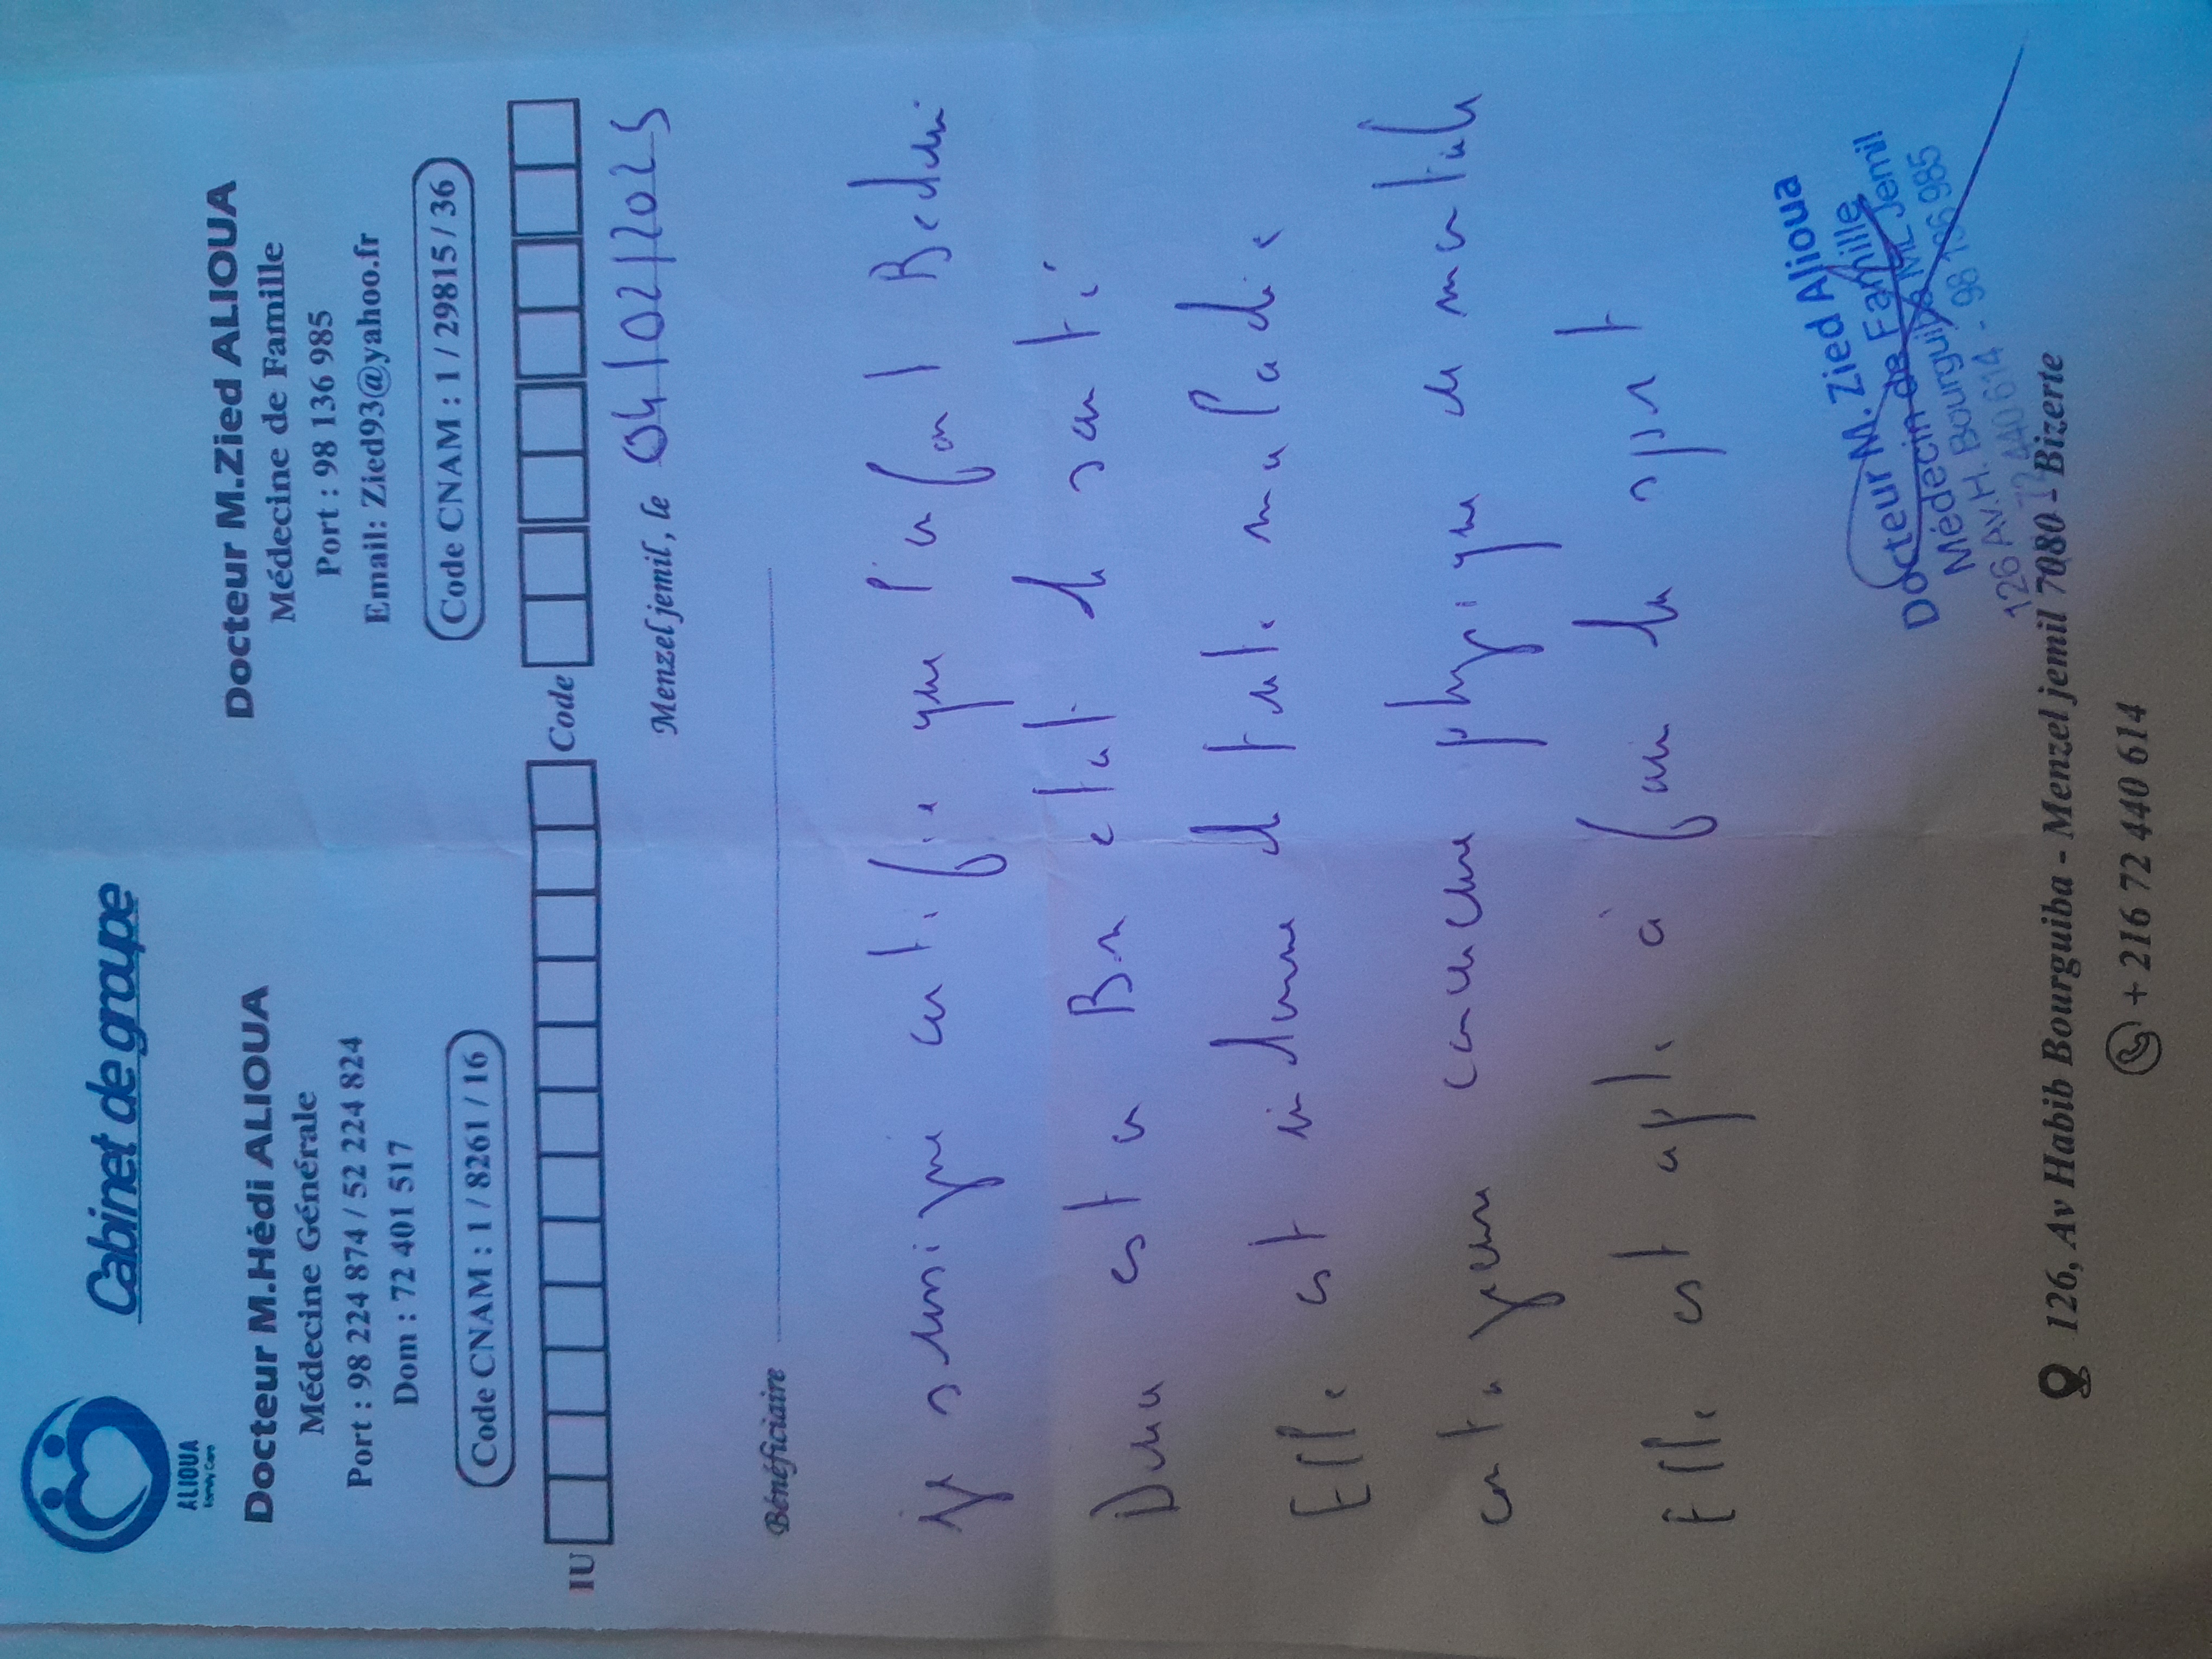 ALIOUA
Family Care
Cabinet de groupe
Docteur M.Hédi ALIOUA
Médecine Générale
Port : 98 224 874 / 52 224 824
Dom : 72 401 517
Code CNAM : 1 / 8261 / 16
Docteur M.Zied ALIOUA
Médecine de Famille
Port : 98 136 985
Email: Zied93@yahoo.fr
Code CNAM : 1 / 29815 / 36
IU
Code
Menzel jemil, le 04/02/2025
Bénéficiaire
je soussigné certifie que l'enfant
est en Bon état de santé
Elle est indemne de toute maladie
contagieuse cardiaque physique ou mentale
Elle est apte à faire du sport
Docteur M. Zied Alioua
Médecin de Famille
126 Av.H. Bourguiba ML Jemil
72 440 614 - 98 136 985
126, Av Habib Bourguiba - Menzel jemil 7080 - Bizerte
+ 216 72 440 614